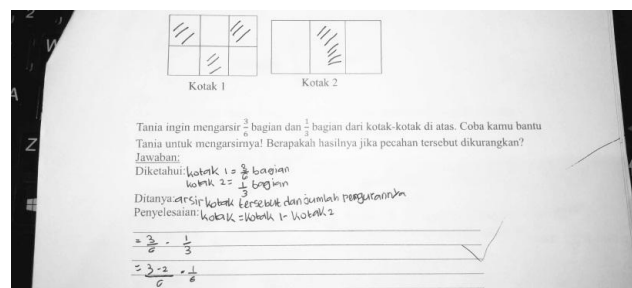 Kotak 1
Kotak 2
Tania ingin mengarsir 3/6 bagian dan 1/3 bagian dari kotak-kotak di atas. Coba kamu bantu
Tania untuk mengarsirnya! Berapakah hasilnya jika pecahan tersebut dikurangkan?
Jawaban:
Diketahui: kotak 1 = 3/6 bagian
kotak 2 = 1/3 bagian
Ditanya: arsir kotak tersebut dan jumlah pengurannya
Penyelesaian: kotak = kotak 1 - kotak 2
= 3/6 - 1/3
= 3-2/6 = 1/6